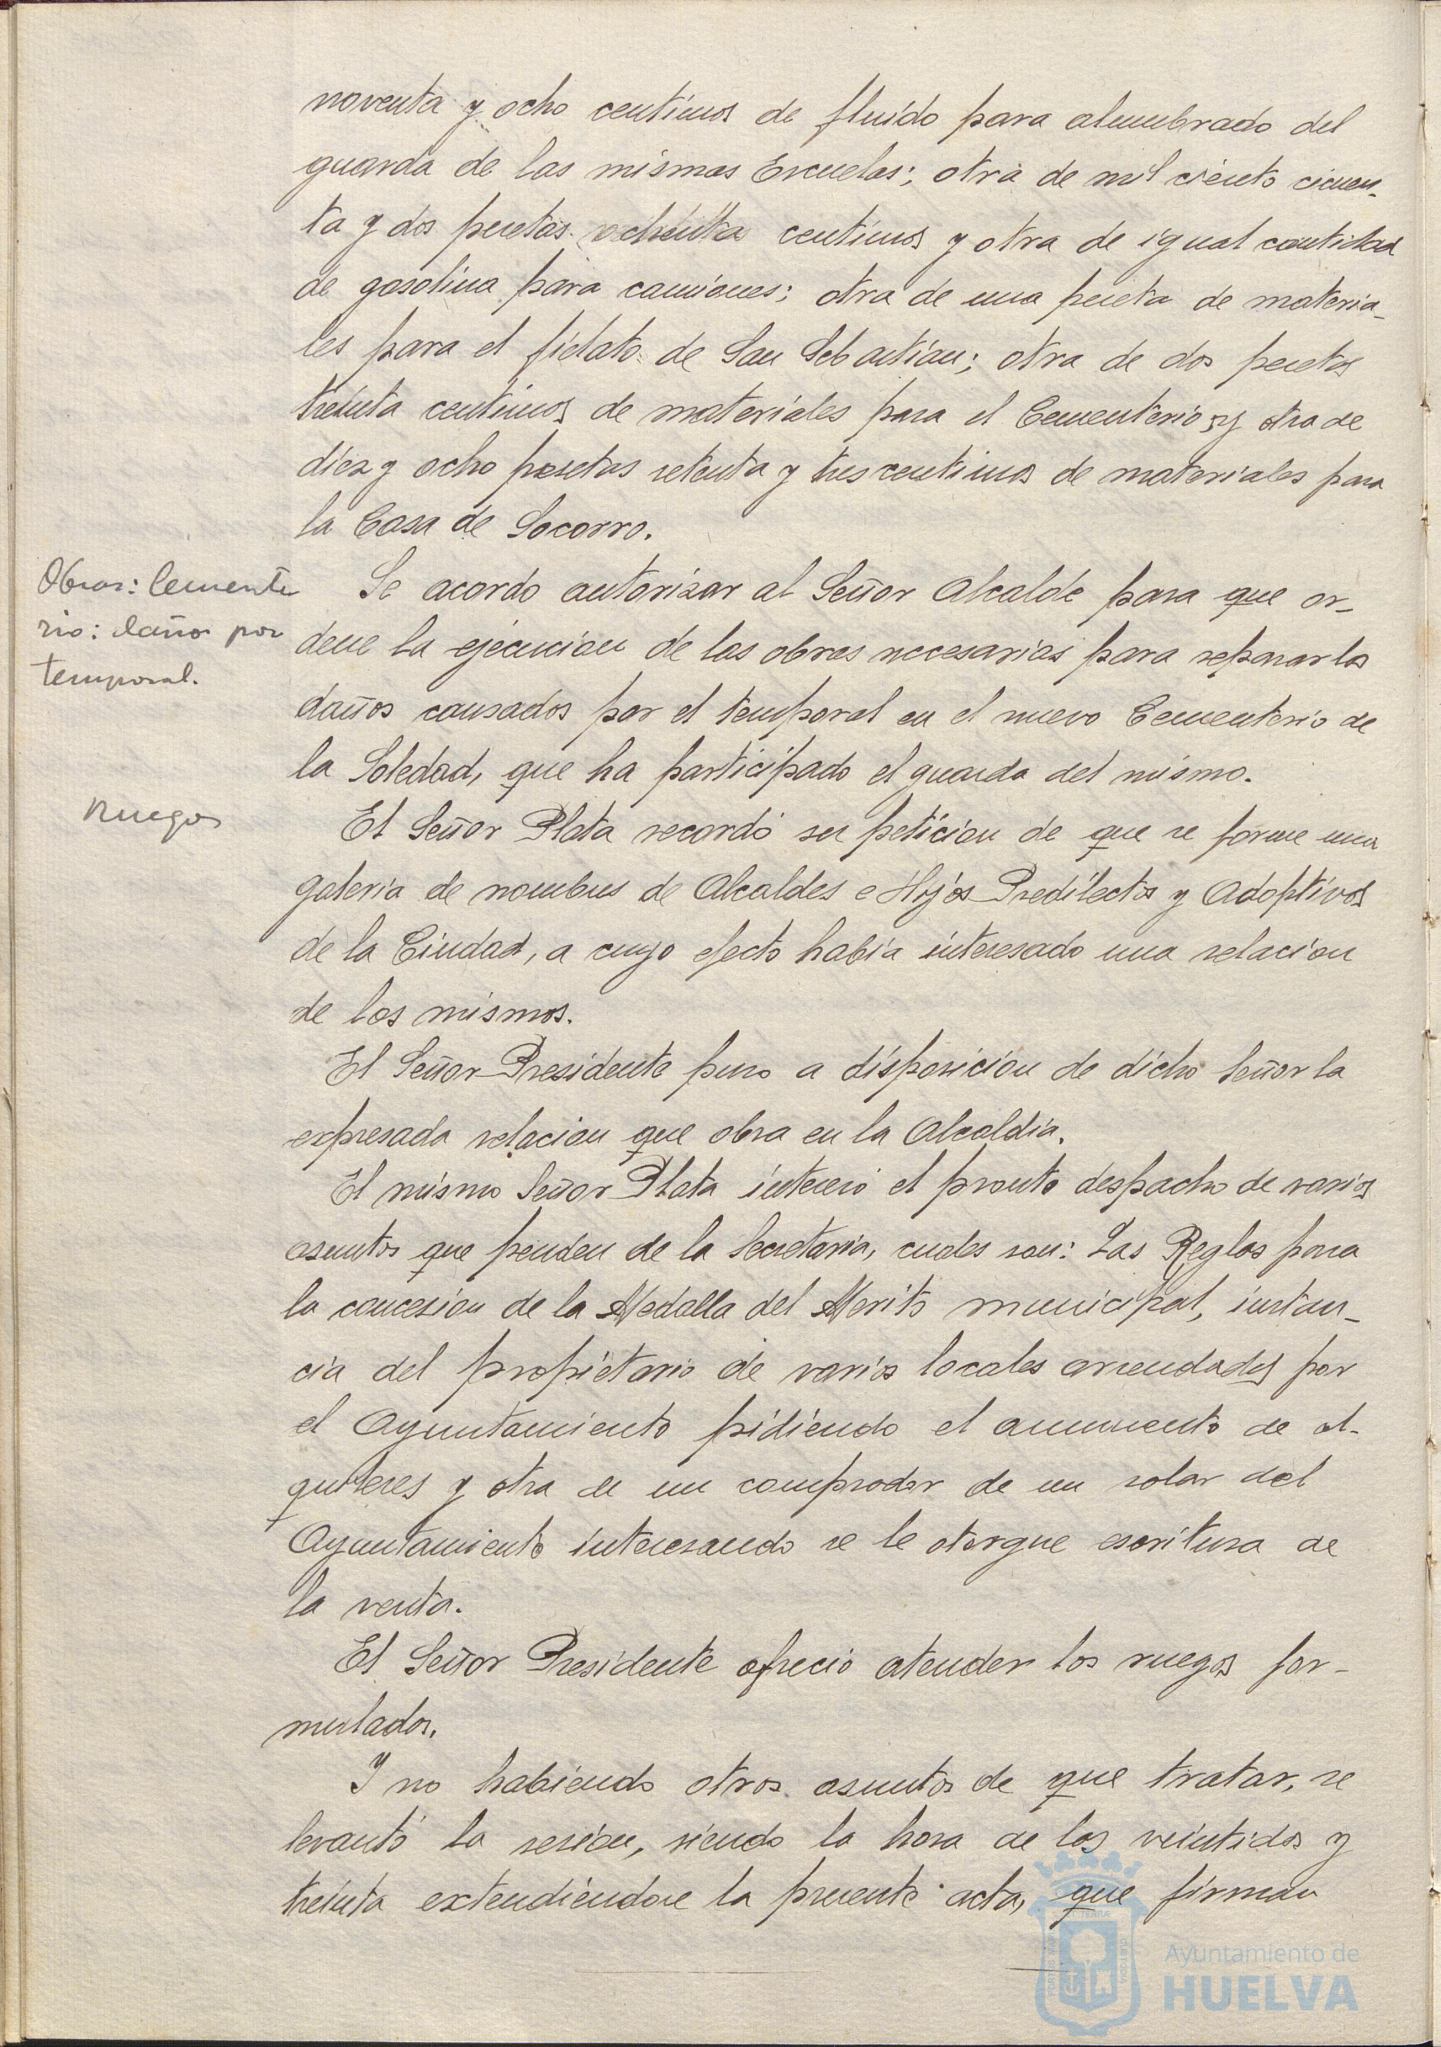 noventa y ocho centimos de fluido para alumbrado del
guarda de las mismas Escuelas; otra de mil ciento cicuen-
ta y dos pesetas ochenta centimos y otra de igual cantidad
de gasolina para camiones; otra de una peseta de materia-
les para el fielato de San Sebastian; otra de dos pesetas
treinta centimos de materiales para el Cementerio y otra de
diez y ocho pesetas setenta y tres centimos de materiales para
la Casa de Socorro.
Obras: Cemente
rio: daños por
temporal.
Se acordo autorizar al Señor Alcalde para que or-
dene la ejecucion de las obras necesarias para reparar los
daños causados por el temporal en el nuevo Cementerio de
la Soledad, que ha participado el guarda del mismo.
Ruegos
El Señor Plata recordó su peticion de que se forme una
galeria de nombres de Alcaldes e Hijos Predilectos y Adoptivos
de la Ciudad, a cuyo efecto habia interesado una relacion
de los mismos.
El Señor Presidente puso a disposicion de dicho Señor la
expresada relacion que obra en la Alcaldia.
El mismo Señor Plata interesó el pronto despacho de varios
asuntos que penden de la Secretaria, cuales son: Las Reglas para
la concesion de la Medalla del Merito municipal, instan-
cia del propietario de varios locales arrendados por
el Ayuntamiento pidiendo el aumento de al-
quileres y otra de un comprador de un solar del
Ayuntamiento interesando se le otorgue escritura de
la venta.
El Señor Presidente ofrecio atender los ruegos for-
mulados.
Y no habiendo otros asuntos de que tratar, se
levantó la sesion, siendo la hora de las veintidos y
treinta extendiendose la presente acta, que firman
Ayuntamiento de
HUELVA